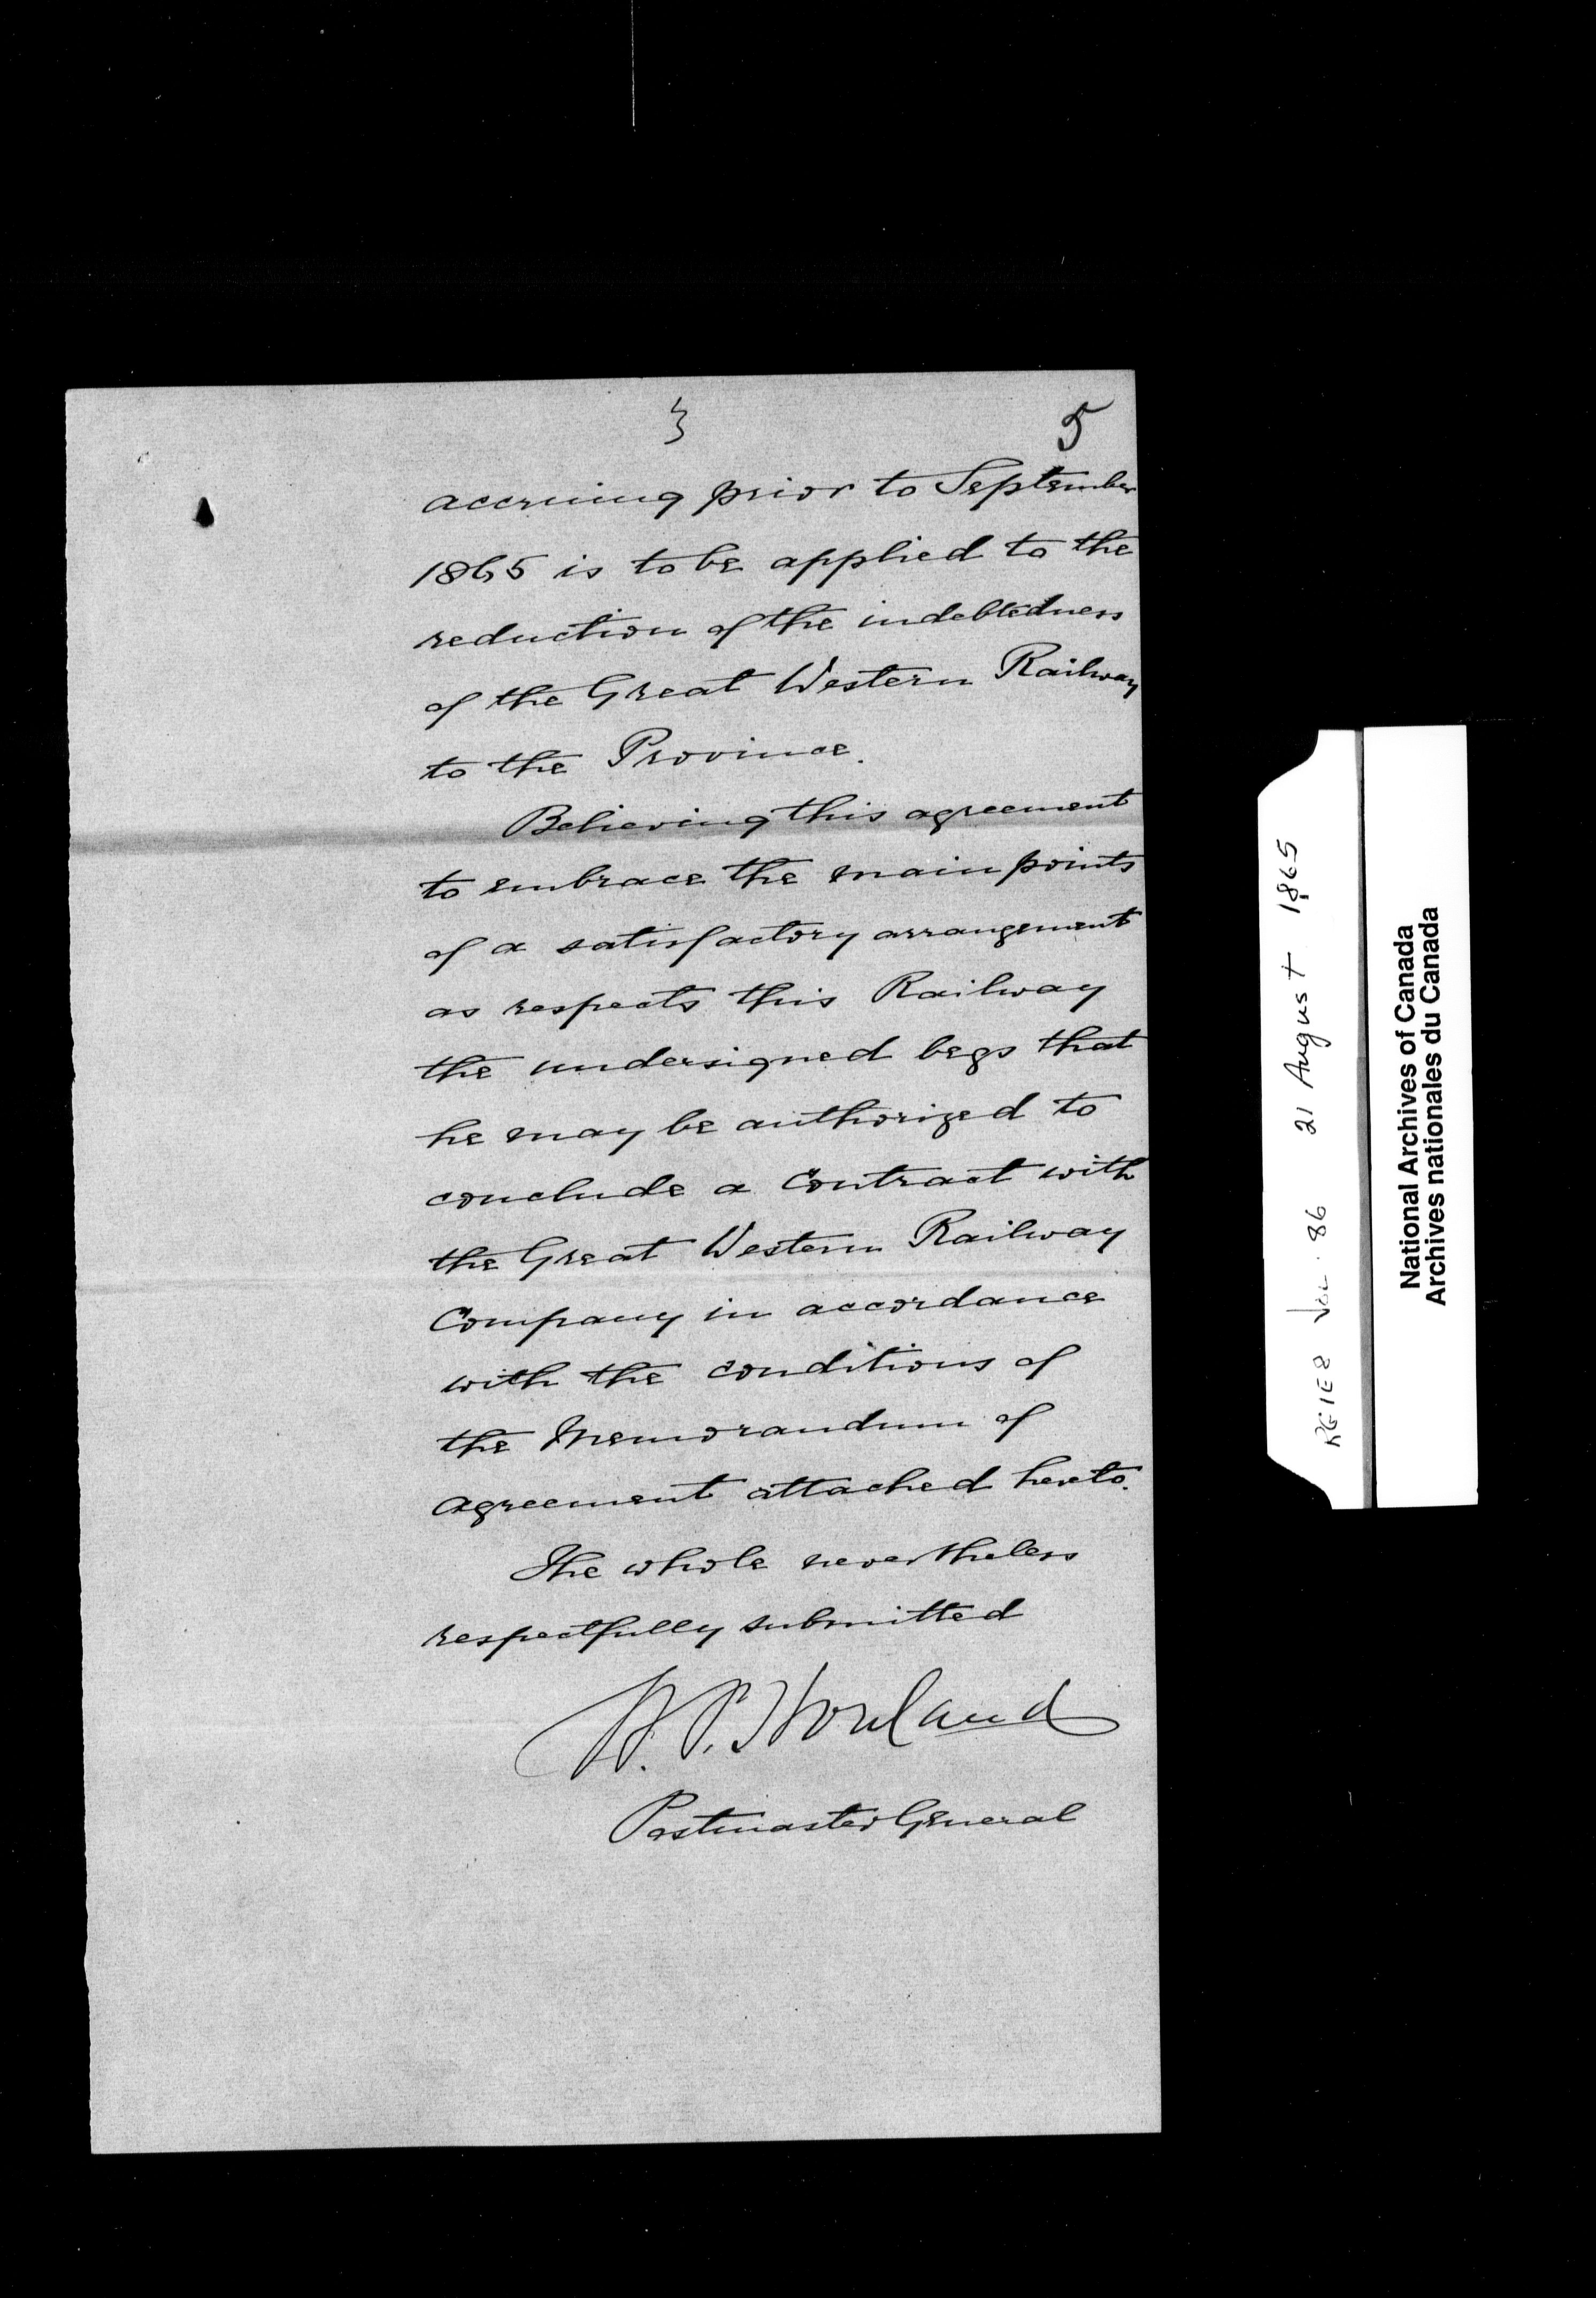 3
5
accruing prior to September
1865 is to be applied to the
reduction of the indebtedness
of the Great Western Railway
to the Province.
Believing this agreement
to embrace the main points
of a satisfactory arrangement
as respects this Railway
the undersigned begs that
he may be authorized to
conclude a Contract with
the Great Western Railway
Company in accordance
with the conditions of
the Memorandum of
agreement attached hereto.
The whole nevertheless
respectfully submitted
W. P. Howland
Postmaster General
RG1E8 Vol. 86 21 August 1865
National Archives of Canada
Archives nationales du Canada